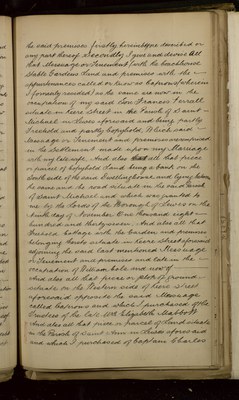 the said premises firstly hereinbefore described or
any part thereof Secondly I give and devise All
that Messuage or Tenement with the backhouse
Stable Gardens Land and premises with the
appurtenances called or known as Caprons (wherein
I formerly resided) as the same are now in the
occupation of my said Son Francis Verrall
situate in Keere Street in the Parish of Saint
Michael in Lewes aforesaid and being partly
Freehold and partly Copyhold Which said
Messuage or Tenement and premises were comprised
in the Settlement made upon my Marriage
with my late wife. And also all that piece
or parcel of copyhold land being a bank on the
South side of the said Dwellinghouse and lying between
the same and the road situate in the said Parish
of Saint Michael and which was granted to
me by the Lords of the Borough of Lewes on the
ninth day of November One thousand eight
hundred and thirty seven And also all that
Freehold Cottage with the Garden and premises
belonging thereto situate in Keere Street aforesaid
adjoining the said last mentioned Messuage
or Tenement and premises and late in the
occupation of William Hale and now of
And also all that piece or plot of ground
situate on the Western side of Keere Street
aforesaid opposite the said Messuage
called Caprons and which I purchased of the
Trustees of the late Mrs Elizabeth Mabbott
And also all that piece or parcel of Land situate
in the Parish of Saint Ann in Lewes aforesaid
and which I purchased of Captain Charles